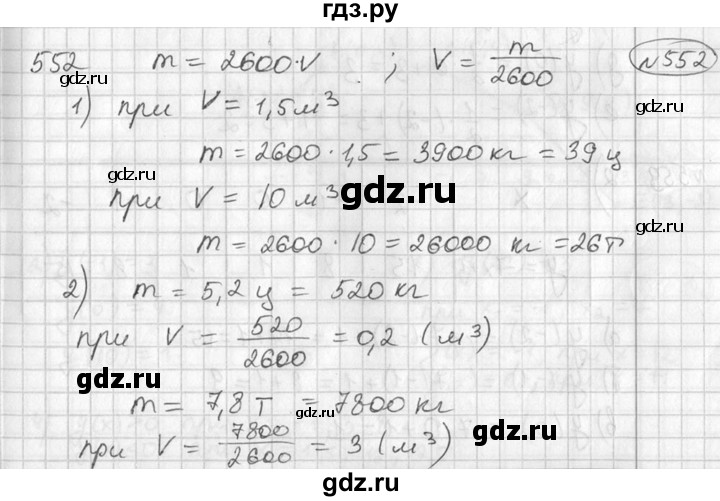 гдз.ру
552 m = 2600·V ; V = m/2600 №552
gdz.ru gdz.ru
1) при V = 1,5 м³
m = 2600 · 1,5 = 3900 кг = 39 ц
gdz.ru gdz.ru
при V = 10 м³
gdz.ru
m = 2600 · 10 = 26000 кг = 26 т
gdz.ru gdz.ru
2) m = 5,2 ц = 520 кг
при V = 520/2600 = 0,2 (м³)
gdz.ru
gdz.ru
m = 7,8 т = 7800 кг
gdz.ru
при V = 7800/2600 = 3 (м³)
gdz.ru
gdz.ru